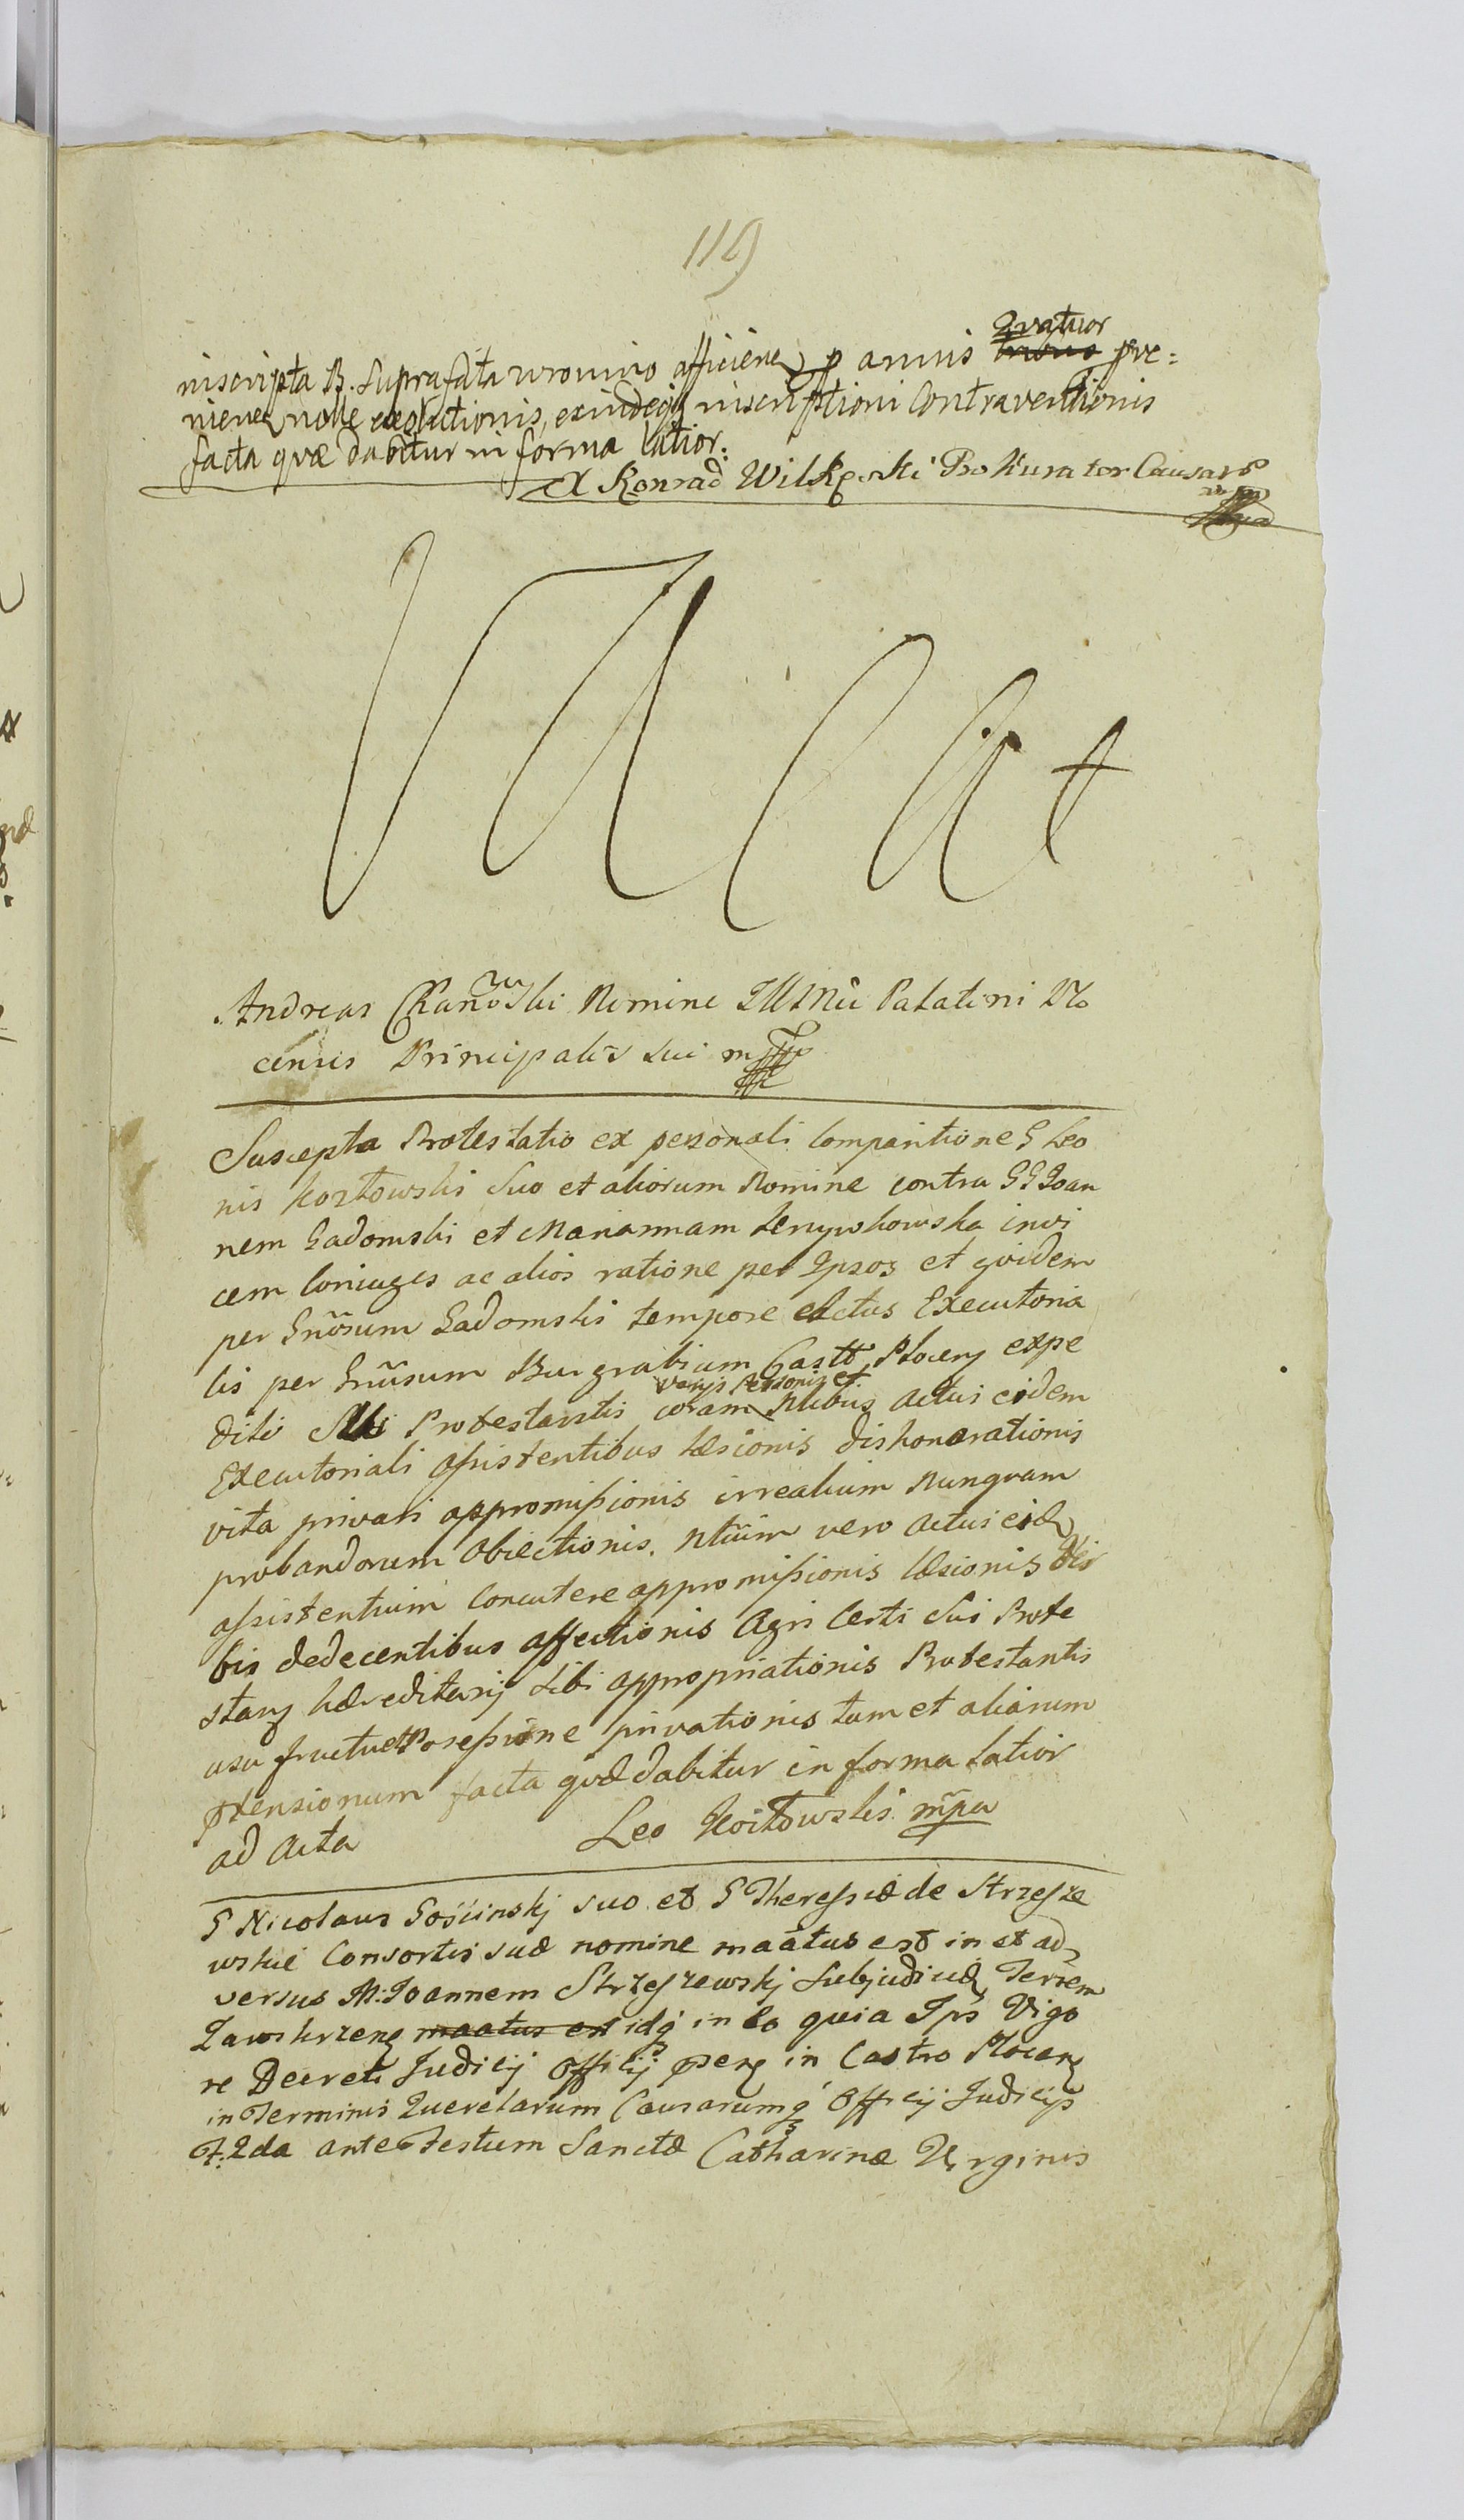 119
Quatuor
inscripta B. Suprafata uronivo afficien p annis tribus pve=
nien nolle exolutionis, exindeq inscriptioni Contraventionis
facta quæ dabitur in forma latior:
X Konrad Wilkęski Prokurator Causar
Vacat
Andreas Chanowski Nomine Palatini Plo
censis Principalis sui mpp
Suscepta Protestatio ex personali Comparitione G Leo
nis Koztowski Suo et aliorum Nomine contra GG Joan
nem Gadomski et Mariannam invi
cem Coniuges ac alios ratione per Ipsos et quidem
per Gnosum Gadomski tempore Actus Executoria
lis per Gnusum Burgrabium Castr Plocen expe
varijs Personis et
diti Sibi Protestantis coram Nlibus Actui eidem
Executoriali assistentibus læsionis dishonorationis
vita privari appromissionis irrealium Nunquam
probandorum Obiectionis. Ntium vero Actui eid
assistentium Concutere appromissionis læsionis Ver
bis dedecentibus affectionis Agri Certi Sui Prote
stan hæreditarij Sibi appropriationis Protestantis
usu fructu et Possessione privationis tum et aliarum
ptensionum facta quæ dabitur in forma latior
ad Acta Leo Koztowski mpa
G Nicolaus Gościnskj suo et G Theressiæ de Strzesze
wskie Consortis suæ nomine maatus est in et ad
versus M. Joannem Strzeszewskj Subjudicē Terrem
Zawskrzen maatus est idq in Eo quia Ips Vigo
re Decreti Judicij Officij psen in Castro Plocen
in Terminis Querelarum Causarumq Officij Judicijs
F. 2da ante Festum Sanctæ Catharinæ Virginis